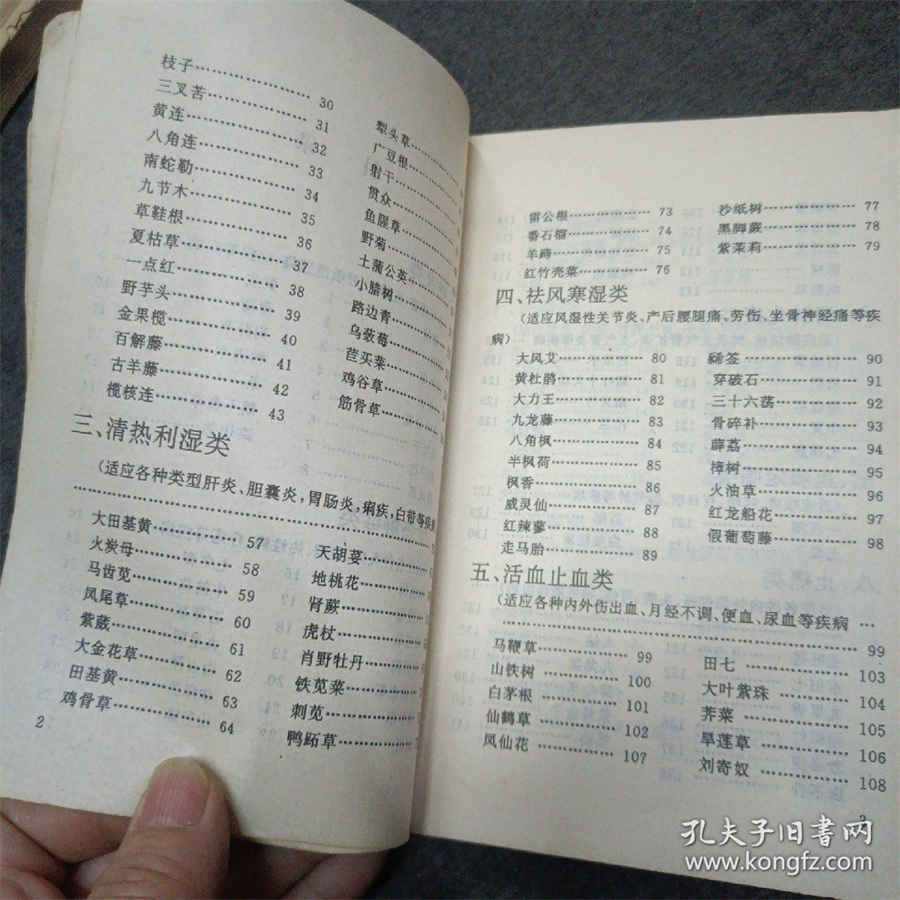 枝子……30
三叉苦……31
黄连……32
八角连……33
南蛇勒……34
九节木……35
草鞋根……36
夏枯草……37
一点红……38
野芋头……39
金果榄……40
百解藤……41
古羊藤……42
榄核连……43
犁头草……
广豆根……
射干……
贯众……
鱼腥草……
野菊……
土蒲公英……
小腊树……
路边青……
乌蔹莓……
苣买菜……
鸡谷草……
筋骨草……
三、清热利湿类
(适应各种类型肝炎、胆囊炎,胃肠炎,痢疾、白带等疾患
大田基黄……57
火炭母……58
马齿苋……59
凤尾草……60
紫薇……61
大金花草……62
田基黄……63
鸡骨草……64
天胡荽……
地桃花……
肾蕨……
虎杖……
肖野牡丹……
铁苋菜……
刺苋……
鸭跖草……
2
雷公根……73
番石榴……74
羊蹄……75
红竹壳菜……76
沙纸树……77
黑脚蕨……78
紫茉莉……79
四、祛风寒湿类
(适应风湿性关节炎、产后腰腿痛、劳伤、坐骨神经痛等疾
病)
大风艾……80
黄杜鹃……81
大力王……82
九龙藤……83
八角枫……84
半枫荷……85
枫香……86
威灵仙……87
红辣蓼……88
走马胎……89
……90
穿破石……91
三十六荡……92
骨碎补……93
薜荔……94
樟树……95
火油草……96
红龙船花……97
假葡萄藤……98
五、活血止血类
(适应各种内外伤出血、月经不调、便血、尿血等疾病……
……99
马鞭草……99
山铁树……100
白茅根……101
仙鹤草……102
凤仙花……107
田七……103
大叶紫珠……104
荠菜……105
旱莲草……106
刘寄奴……108
3
孔夫子旧书网
www.kongfz.com